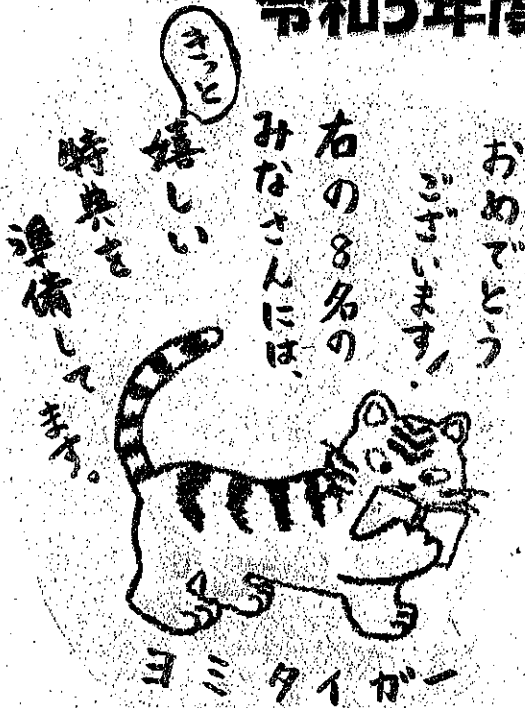 令和5年度
おめでとう
ございます!
右の8名の
みなさんには、
きっと
嬉しい
特典を
準備して
ます。
ヨミタイガー